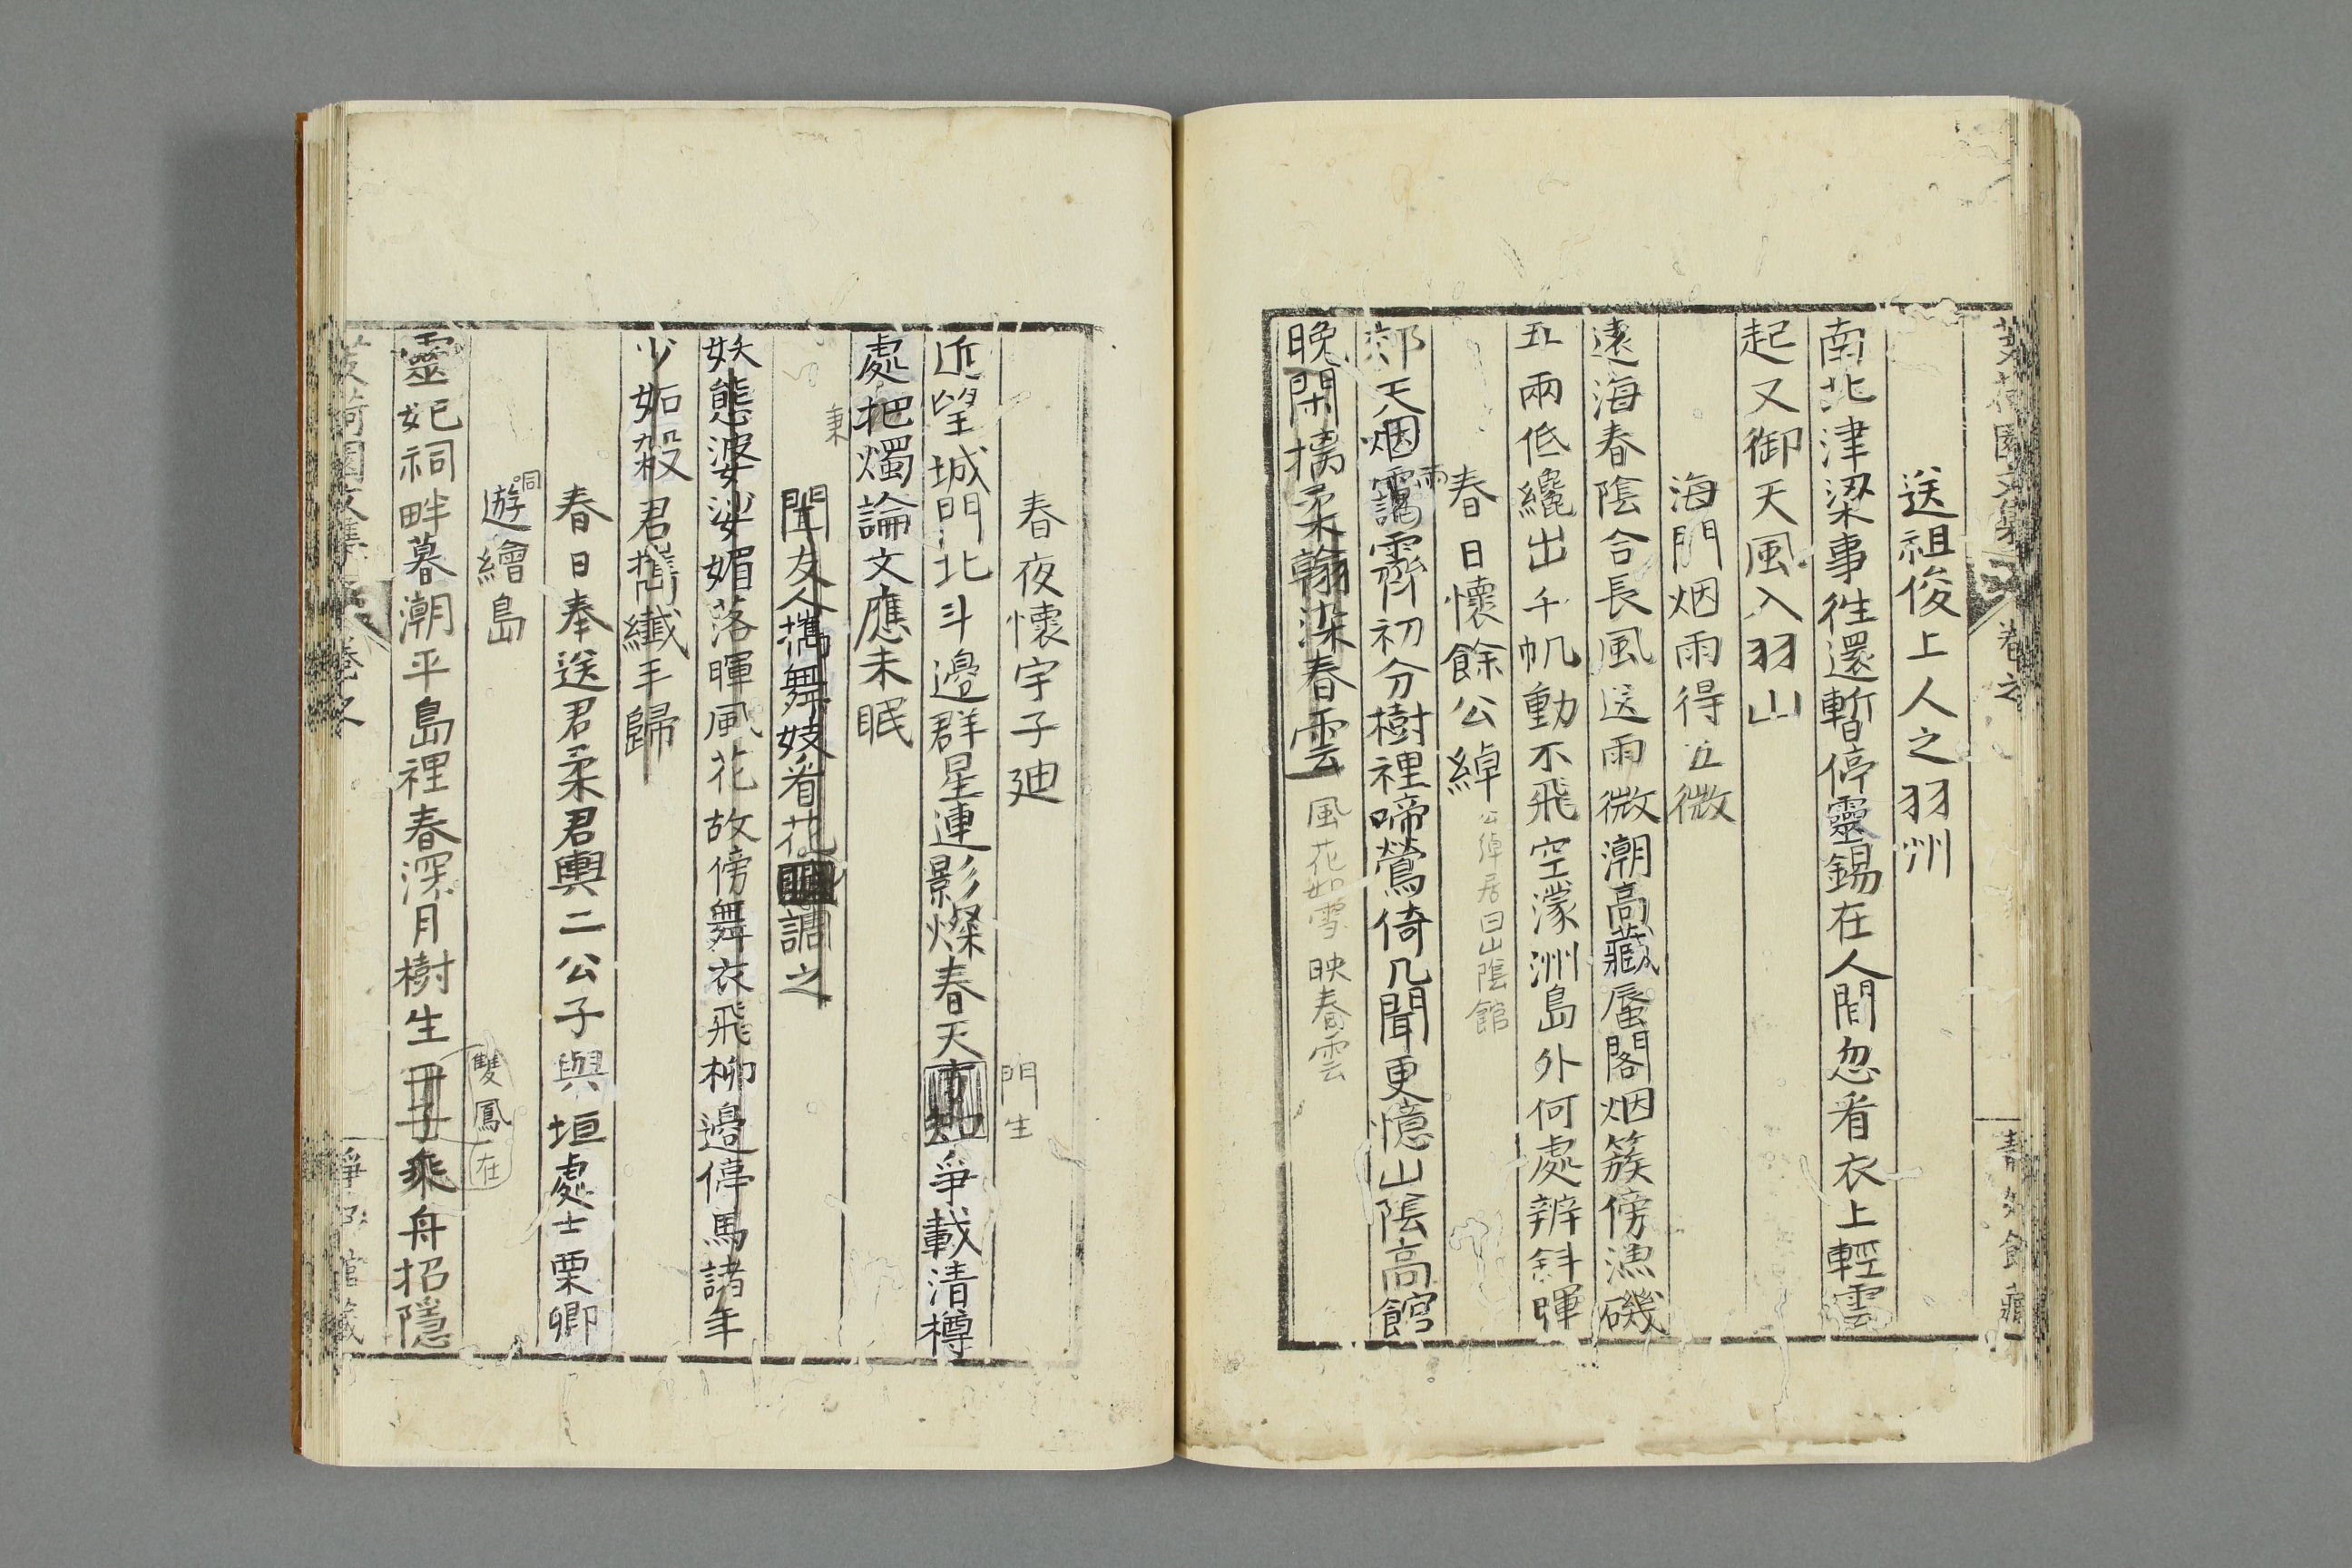 芰荷園文集 卷之
靜好館藏
送祖俊上人之羽州
南北津梁事往還暫停靈錫在人間忽看衣上輕雲
起又御天風入羽山
海門烟雨得五微
遠海春陰合長風送雨微潮高藏蜃閣烟簇傍漁磯
五兩低纔出千帆動不飛空濛洲島外何處辨斜暉
春日懷餘公綽 公綽居曰山陰館
郊天烟靄霽初分樹裡啼鶯倚几聞更憶山陰高館
雨
晚閑摛柔翰染春雲 風花如雪映春雲
春夜懷宇子廸
門生
近望城門北斗邊群星連影燦春天爭載清樽
處把燭論文應未眠
秉
聞友人攜舞妓看花調之
妖態婆娑媚落暉風花故傍舞衣飛柳邊停馬諸年
少妬殺君攜纖手歸
春日奉送君柔君輿二公子與垣處士栗卿
同
遊繪島
雙鳳在
靈妃祠畔暮潮平島裡春深月樹生子乘舟招隱
芰荷園文集 卷之
靜好館藏